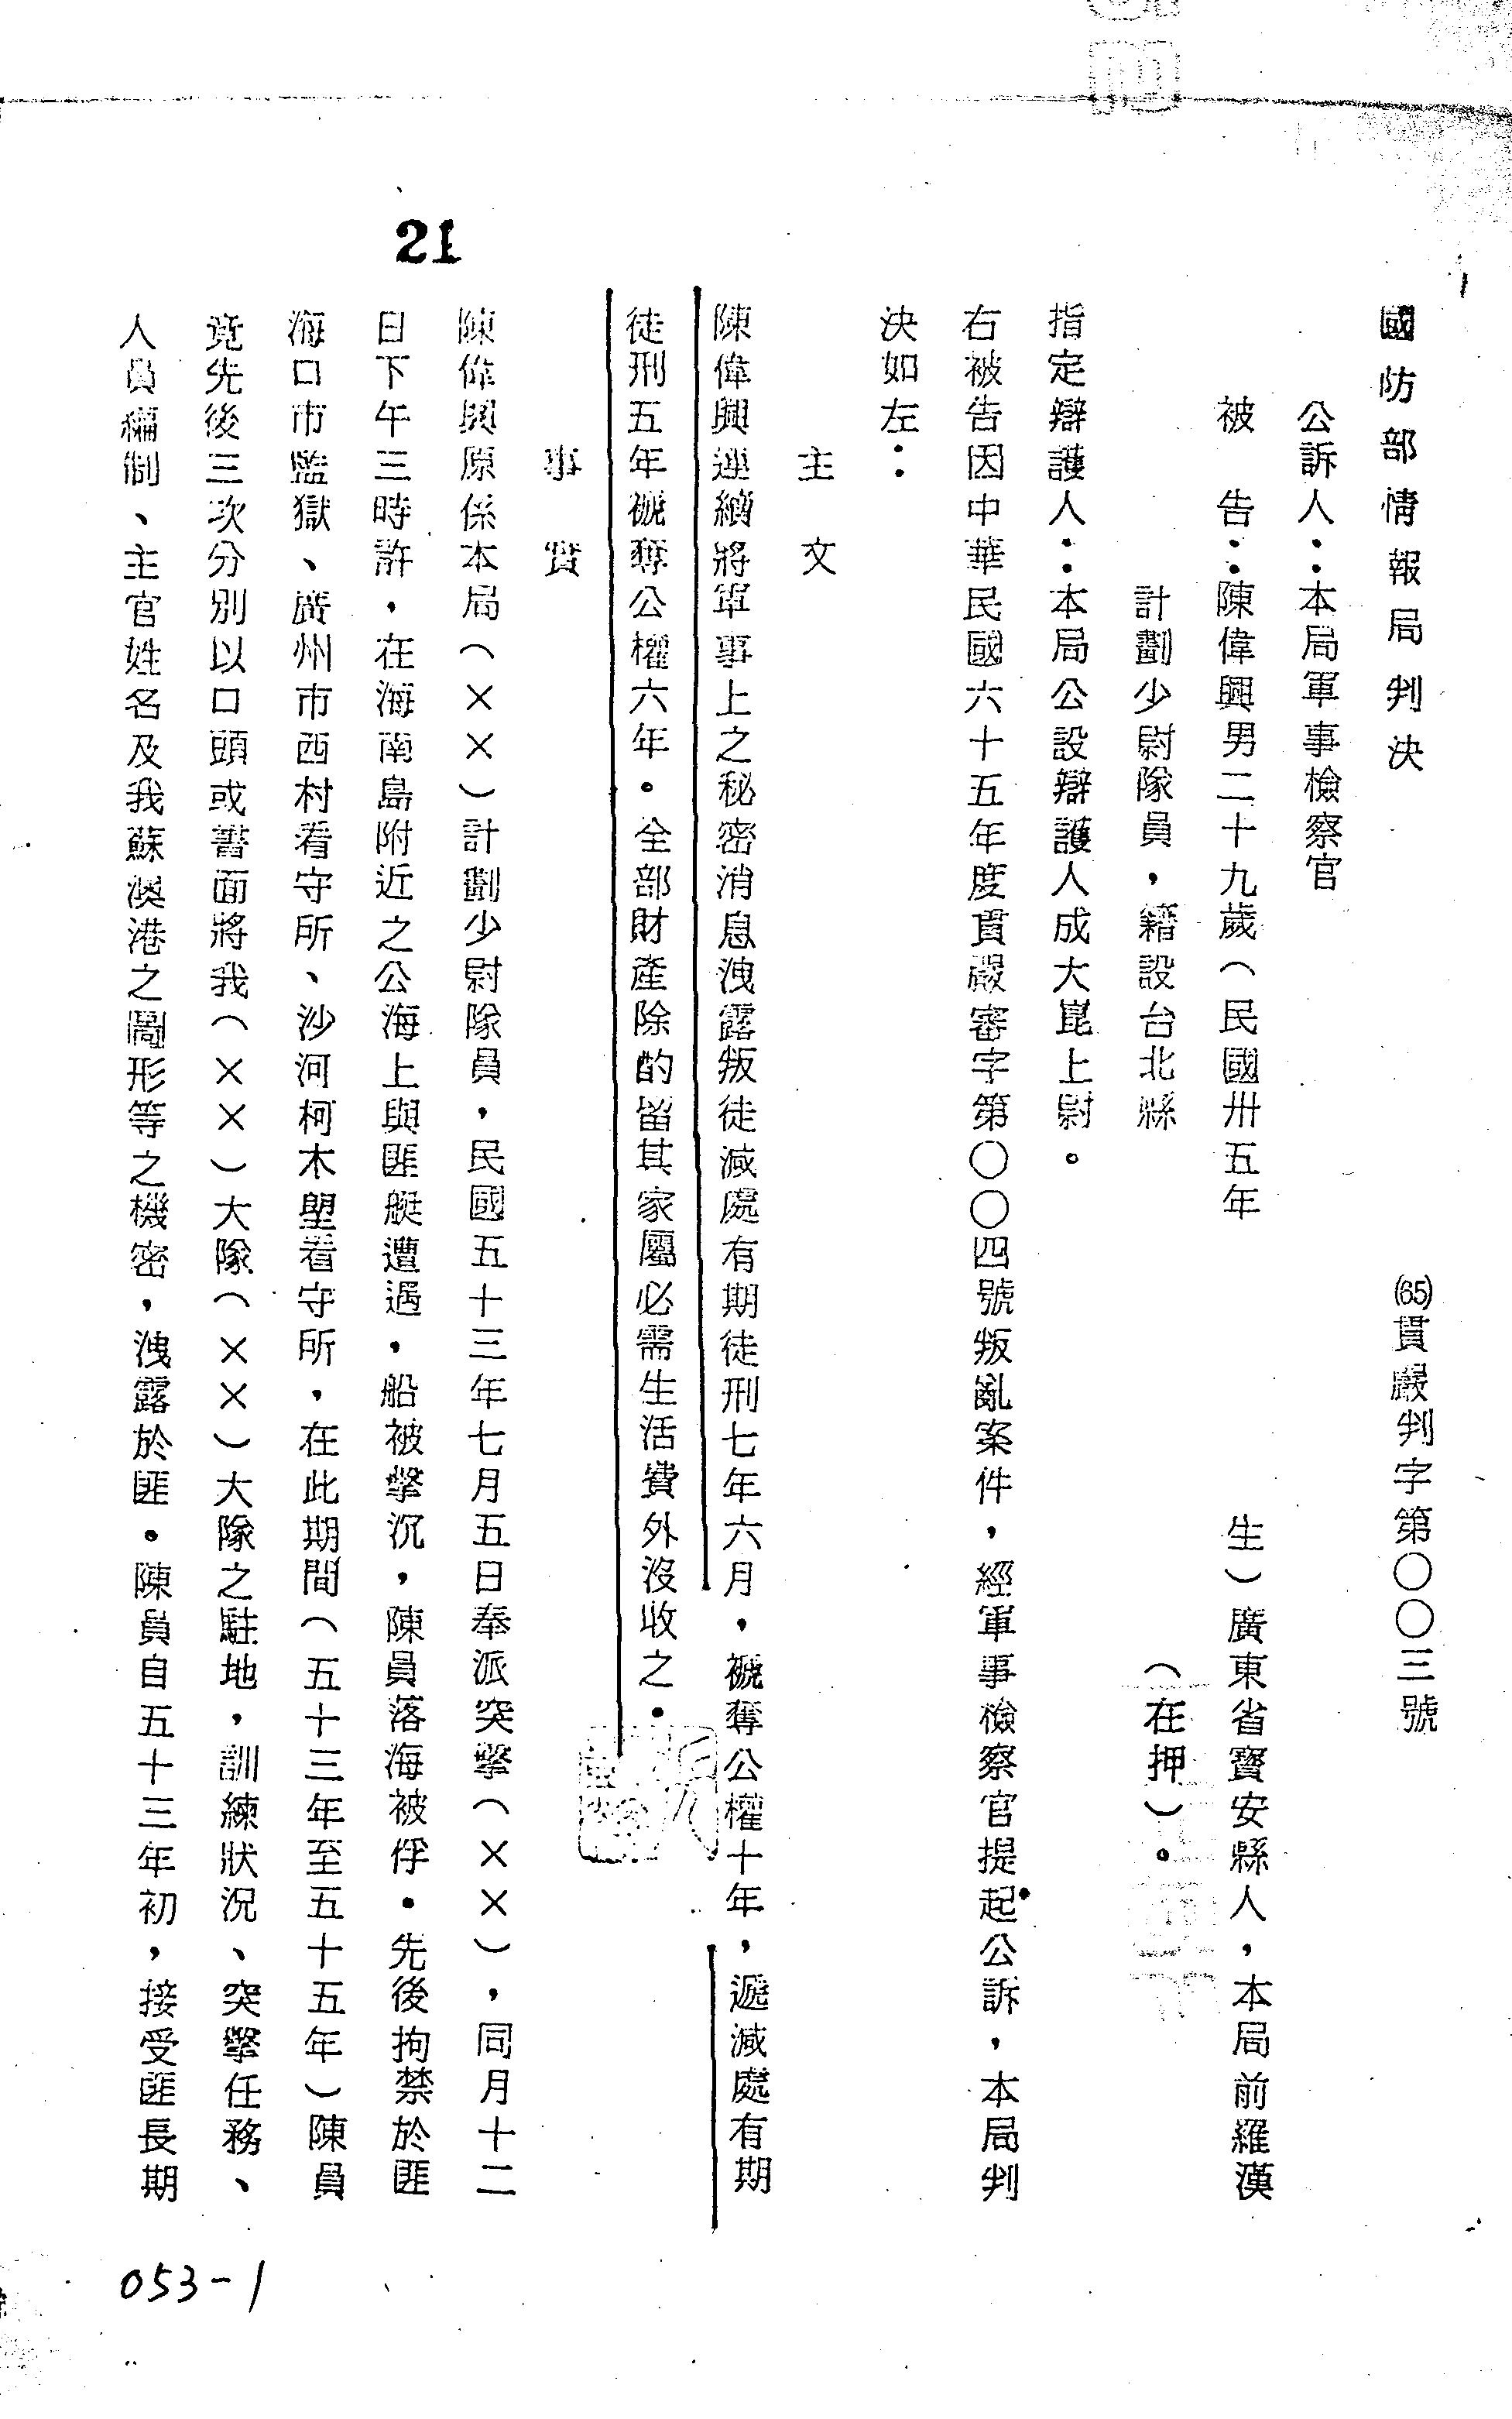 21
國防部情報局判決 (65)貫嚴判字第〇〇三號
公訴人：本局軍事檢察官
被告：陳偉興男二十九歲（民國卅五年 生）廣東省寶安縣人，本局前羅漢
計劃少尉隊員，籍設台北縣 （在押）。
指定辯護人：本局公設辯護人成大崑上尉。
右被告因中華民國六十五年度貫嚴審字第〇〇四號叛亂案件，經軍事檢察官提起公訴，本局判
決如左：
主文
陳偉興連續將軍事上之秘密消息洩露叛徒減處有期徒刑七年六月，褫奪公權十年，遞減處有期
徒刑五年褫奪公權六年。全部財產除酌留其家屬必需生活費外沒收之。
事實
陳偉興原係本局（××）計劃少尉隊員，民國五十三年七月五日奉派突擊（××），同月十二
日下午三時許，在海南島附近之公海上與匪艇遭遇，船被擊沉，陳員落海被俘。先後拘禁於匪
海口市監獄、廣州市西村看守所、沙河柯木塱看守所，在此期間（五十三年至五十五年）陳員
竟先後三次分別以口頭或書面將我（××）大隊（××）大隊之駐地，訓練狀況、突擊任務、
人員編制、主官姓名及我蘇澳港之圖形等之機密，洩露於匪。陳員自五十三年初，接受匪長期
053-1